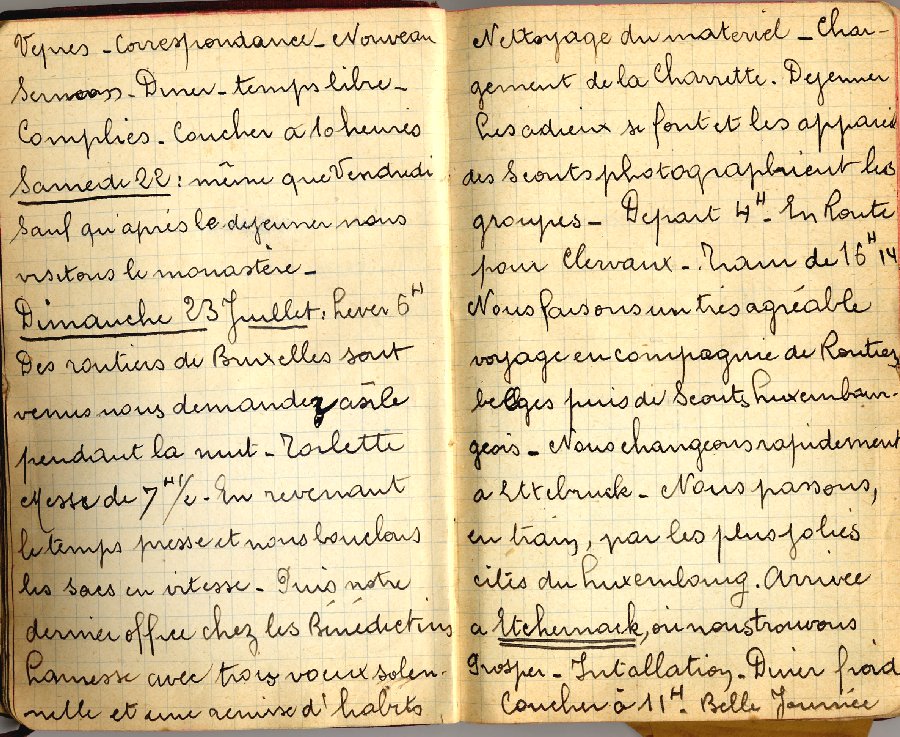 Vepres - Correspondance - Nouveau
Sermons - Diner - temps libre -
Complies - Coucher a 10 heures
Samedi 22 : même que Vendredi
Sauf qu'après le dejeuner nous
visitons le monastère -
Dimanche 23 Juillet : Lever 6H
Des routiers de Bruxelles sont
venus nous demander asile
pendant la nuit - Toilette
Messe de 7H 1/2 - En revenant
le temps presse et nous bouclons
les sacs en vitesse - Puis notre
dernier office chez les Bénédictins
La messe avec trois voeux solen-
nelle et une remise d'habits
Nettoyage du materiel - Char-
gement de la Charrette. Dejeuner
Les adieux se font et les appareils
des Scouts photographient les
groupes - Depart 4H - En Route
pour Clervaux - Train de 16H 14
Nous faisons un très agréable
voyage en compagnie de Routiers
belges puis de Scouts Luxembour-
geois - Nous changeons rapidement
a Ettebruck - Nous passons,
en train, par les plus jolies
cités du Luxembourg. Arrivée
a Etchernack, où nous trouvons
Prosper - Intallation - Diner froid
Coucher à 11H - Belle Journée